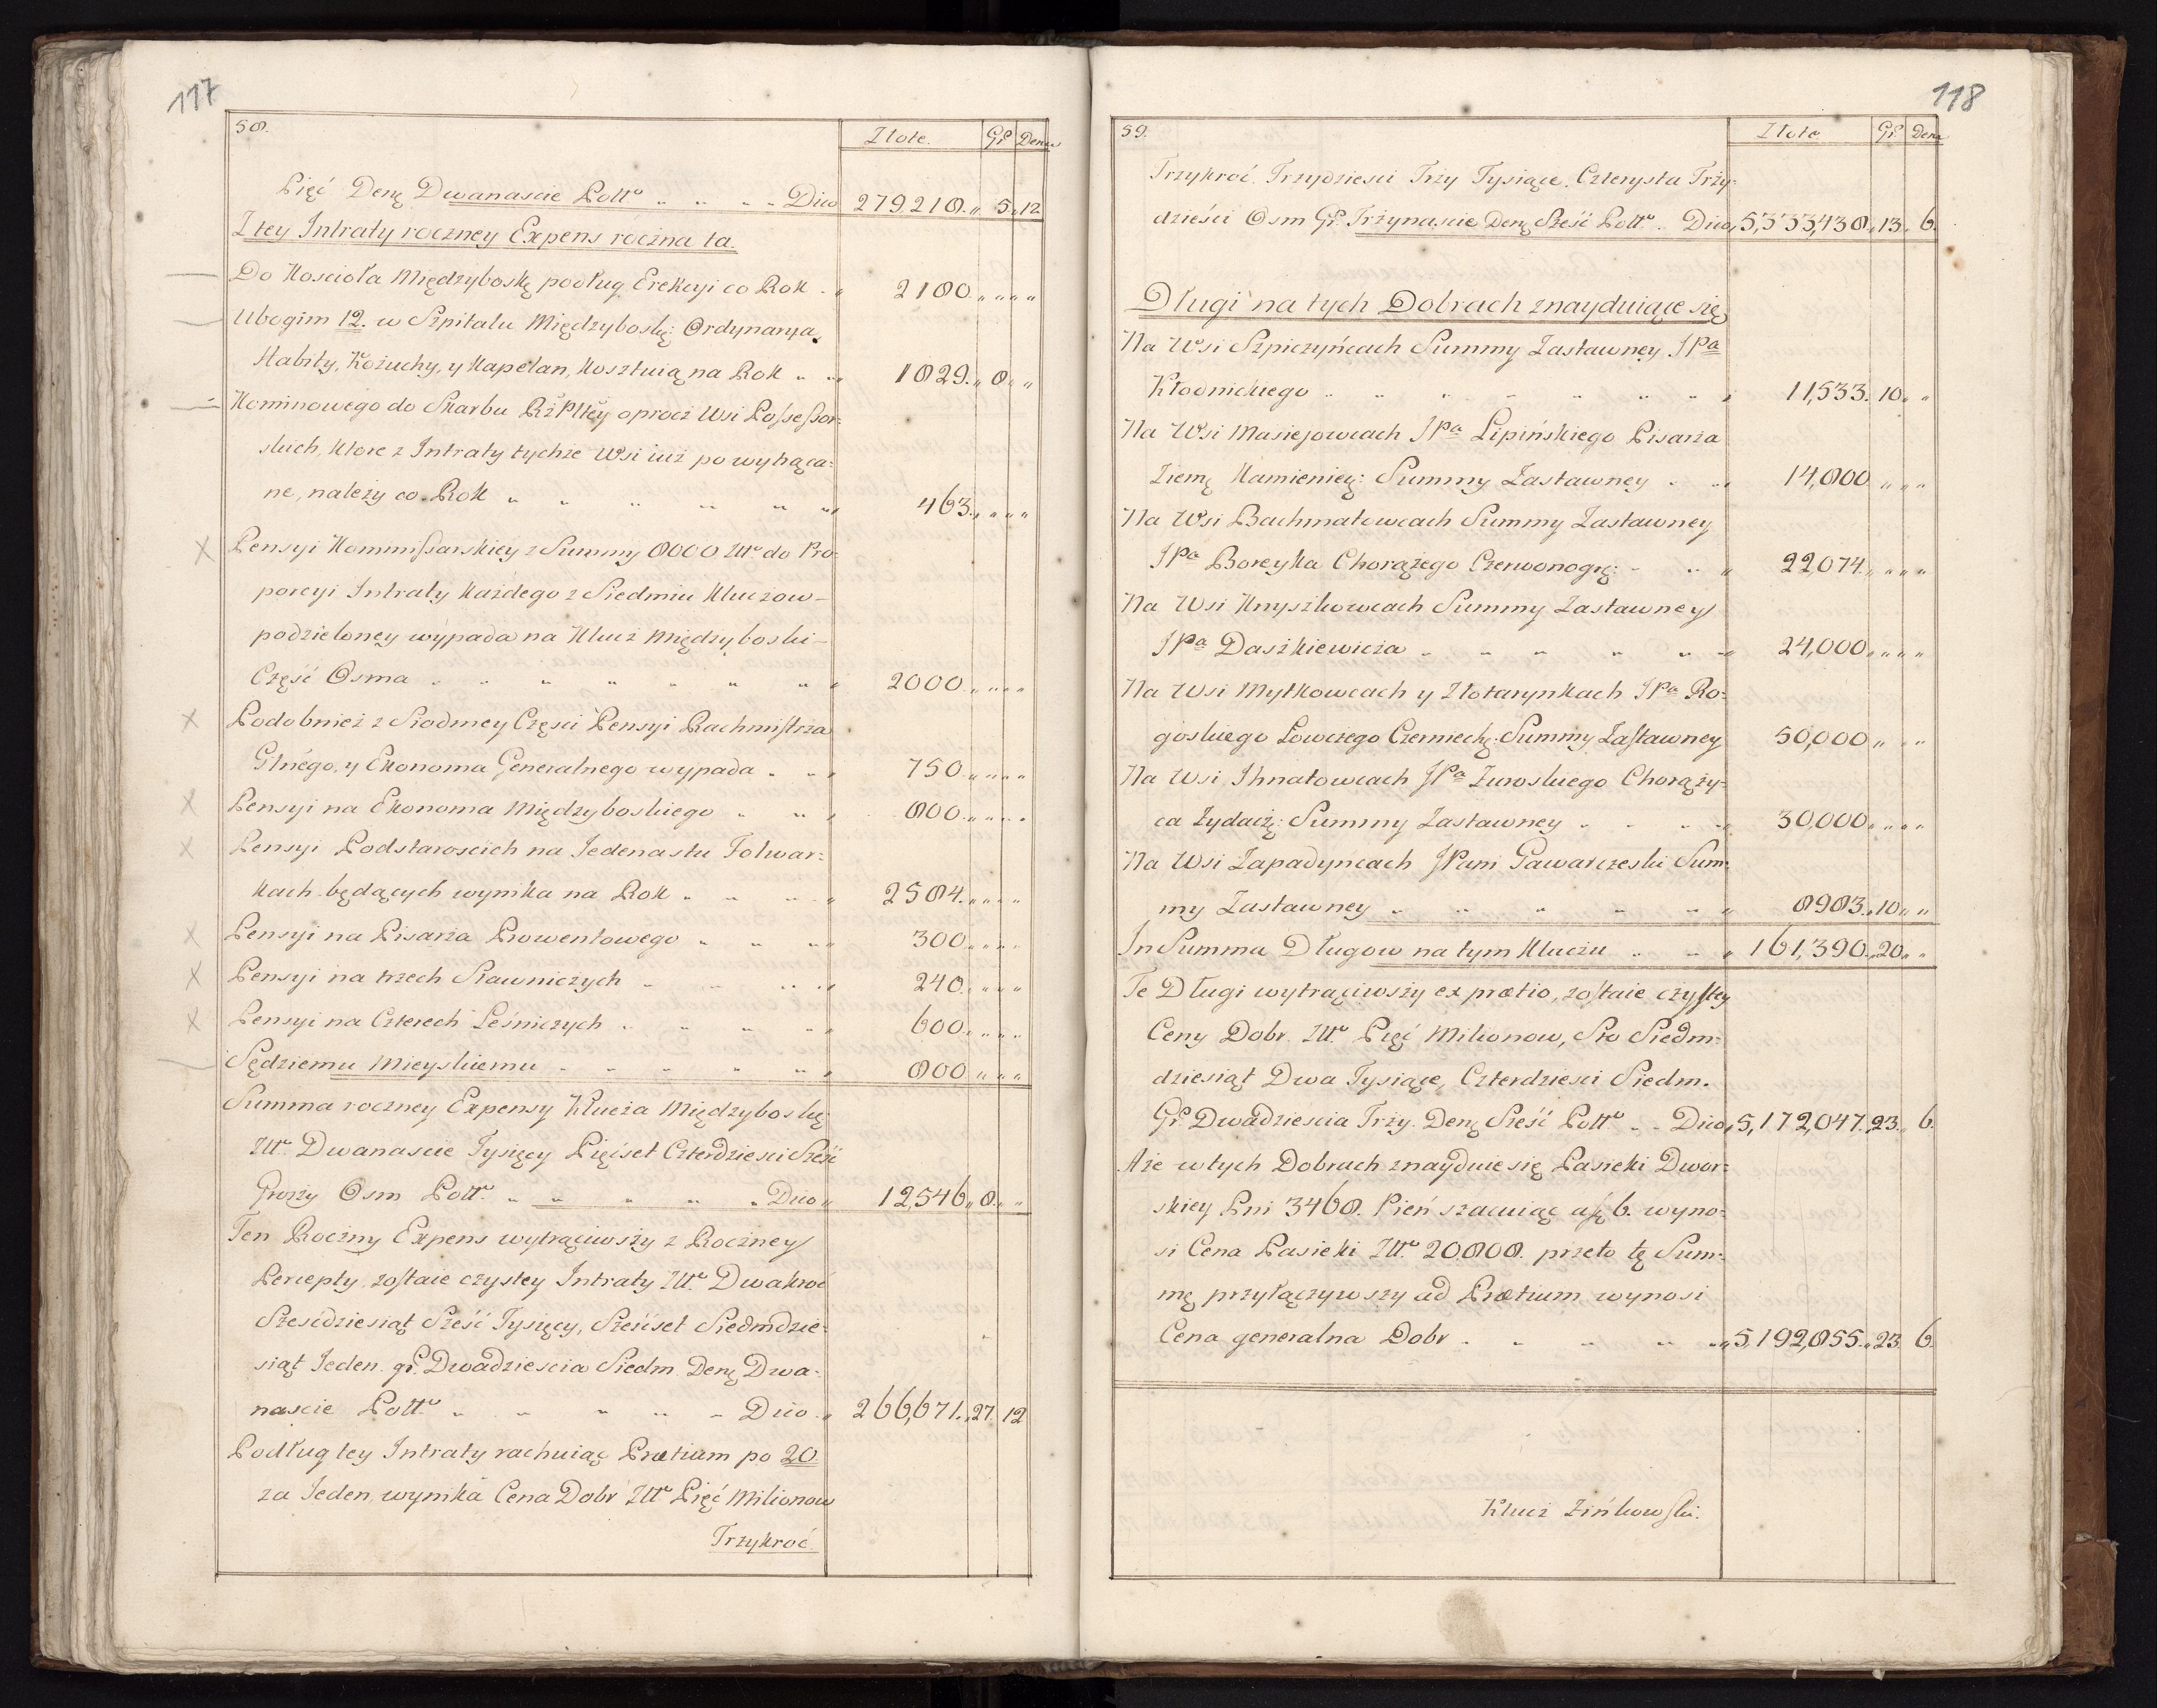 117
58.
Złote. Gr Dena
Pięć Denę Dwanascie Poltt „ „ „ Dico 279218. „ 5 „ 12
Z tey Intraty roczney Expens roczna ta.
Do Koscioła Międzyboskę podług Erekcyi co Rok „ 2180. „ „ „
Ubogim 12. w Szpitalu Międzyboskę: Ordynarya,
Habity, Kożuchy, y Kapelan, Kosztuią na Rok „ „ 1829. „ 8 „ „
Kominowego do Skarbu RżPlltey oprocz Wsi Possessor=
skich, Ktore z Intraty tychże Wsi iuż powytrąca=
ne, należy co Rok „ „ „ „ „ „ 463. „ „ „
Pensyi Kommissarskiey z Summy 8000 Złt do Pro=
porcyi Intraty Każdego z Siedmiu Kluczow
podzieloney wypada na Klucz Międzyboski
Część Osma „ „ „ „ „ „ „ 2000. „ „ „
Podobnież z Siodmey Częsci Pensyi Rachmistrza
Głnego, y Ekonoma Generalnego wypada „ „ 750. „ „ „
Pensyi na Ekonoma Międzyboskiego „ „ „ 800. „ „ „
Pensyi Podstaroscich na Jedenastu Folwar=
kach będących wynika na Rok „ „ „ „ 2584. „ „ „
Pensyi na Pisarza Prowentowego „ „ „ 300. „ „ „
Pensyi na trzech Stawniczych „ „ „ 240. „ „ „
Pensyi na Czterech Leśniczych „ „ „ „ 600. „ „ „
Sędziemu Mieyskiemu „ „ „ „ „ 800 „ „ „
Summa roczney Expensy Klucza Międzyboskę
Złt Dwanascie Tysięcy Pięćset Czterdziesci Sześć
Groszy Osm Poltt „ „ „ „ Dico „ 12,546 „ 8. „ „
Ten Roczny Expens wytrąciwszy z Roczney
Percepty, zostaie czystey Intraty Złt Dwakroć
Sześćdziesiąt Sześć Tysięcy, Sześćset Siedmdzie=
siąt Jeden. gr. Dwadziescia Siedm Denę Dwa=
nascie Poltt „ „ „ „ Dico „ 266,671. „ 27. 12
Podług tey Intraty rachuiąc Prætium po 20.
za Jeden, wynika Cena Dobr Złt Pięć Milionow
Trzykroć
118
59.
Złote Gr Dena
Trzykroć Trzydziesci Trzy Tysiące, Czterysta Trzy=
dzieści Osm Gr. Trzynascie Denę Sześć Poltt „ Dico „ 5,333,438 „ 13 „ 6.
Długi na tych Dobrach znayduiące się
Na Wsi Szpiczyńcach Summy Zastawney JPa
Kłodnickiego „ „ „ „ „ „ „ 11,533. 10 „ „
Na Wsi Masiejowcach JPa Lipińskiego Pisarza
Ziemę Kamienieę: Summy Zastawney „ „ 14,800 „ „ „
Na Wsi Bachmatowcach Summy Zastawney
JPa Boreyka Chorążego Czerwonogrę: „ „ „ 22,074 „ „ „
Na Wsi Knyszkowcach Summy Zastawney
JPa Daszkiewicza „ „ „ „ „ „ 24,000 „ „ „
Na Wsi Mytkowcach y Złotarynkach JPa Ro=
goskiego Łowczego Czerniechę: Summy Zastawney 50,000 „ „ „
Na Wsi Ihnatowcach JPa Zuroskiego Chorąży=
ca Żydaczę: Summy Zastawney „ „ „ „ 30,000 „ „ „
Na Wsi Zapadyńcach JPani Gawarczeski Sum=
my Zastawney „ „ „ „ „ „ 8983. „ 10 „ „
In Summa Długow na tym Kluczu „ „ „ 161,390. „ 20 „ „
Te Długi wytrąciwszy ex prætio, zostaie czystey
Ceny Dobr Złt Pięć Milionow, Sto Siedm=
dziesiąt Dwa Tysiące, Czterdziesci Siedm.
Gr. Dwadziescia Trzy. Denę Sześć Poltt „ „ Dico „ 5,172,047. „ 23. „ 6.
Aże w tych Dobrach znayduie się Pasieki Dwor=
skiey Pni 3468. Pień szacuiąc a fę 6. wyno=
si Cena Pasieki Złt 20,808. przeto tę Sum=
mę przyłączywszy ad Prætium wynosi
Cena generalna Dobr „ „ „ „ „ 5,192,855. „ 23 6.
Klucz Zińkowski.